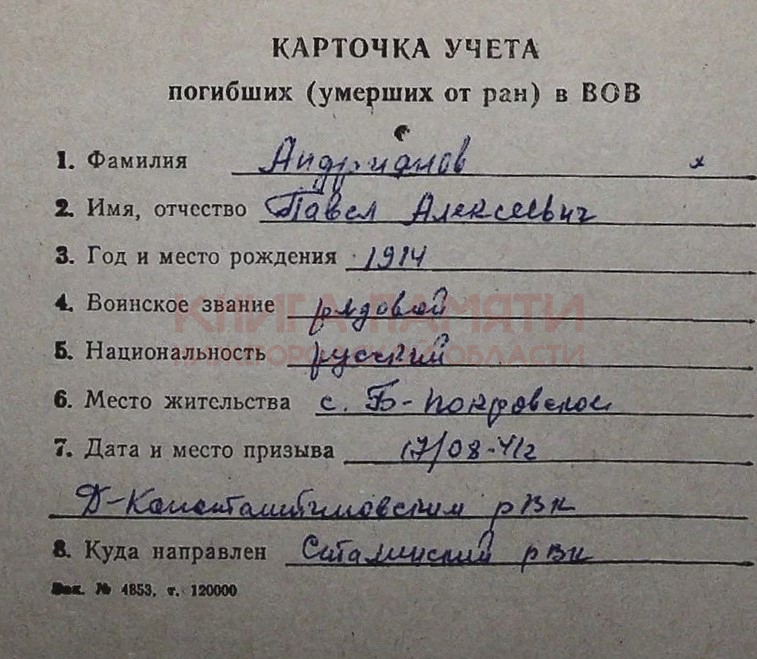 КАРТОЧКА УЧЕТА
погибших (умерших от ран) в ВОВ
1. Фамилия Андрианов
2. Имя, отчество Павел Алексеевич
3. Год и место рождения 1914
4. Воинское звание рядовой
5. Национальность русский
6. Место жительства с. Б-Покровское
7. Дата и место призыва 17/08-41г
Д-Константиновским рВК
8. Куда направлен Сталинский рВК
Зак. № 4853, т. 120000
КНИГА ПАМЯТИ
НИЖЕГОРОДСКОЙ ОБЛАСТИ